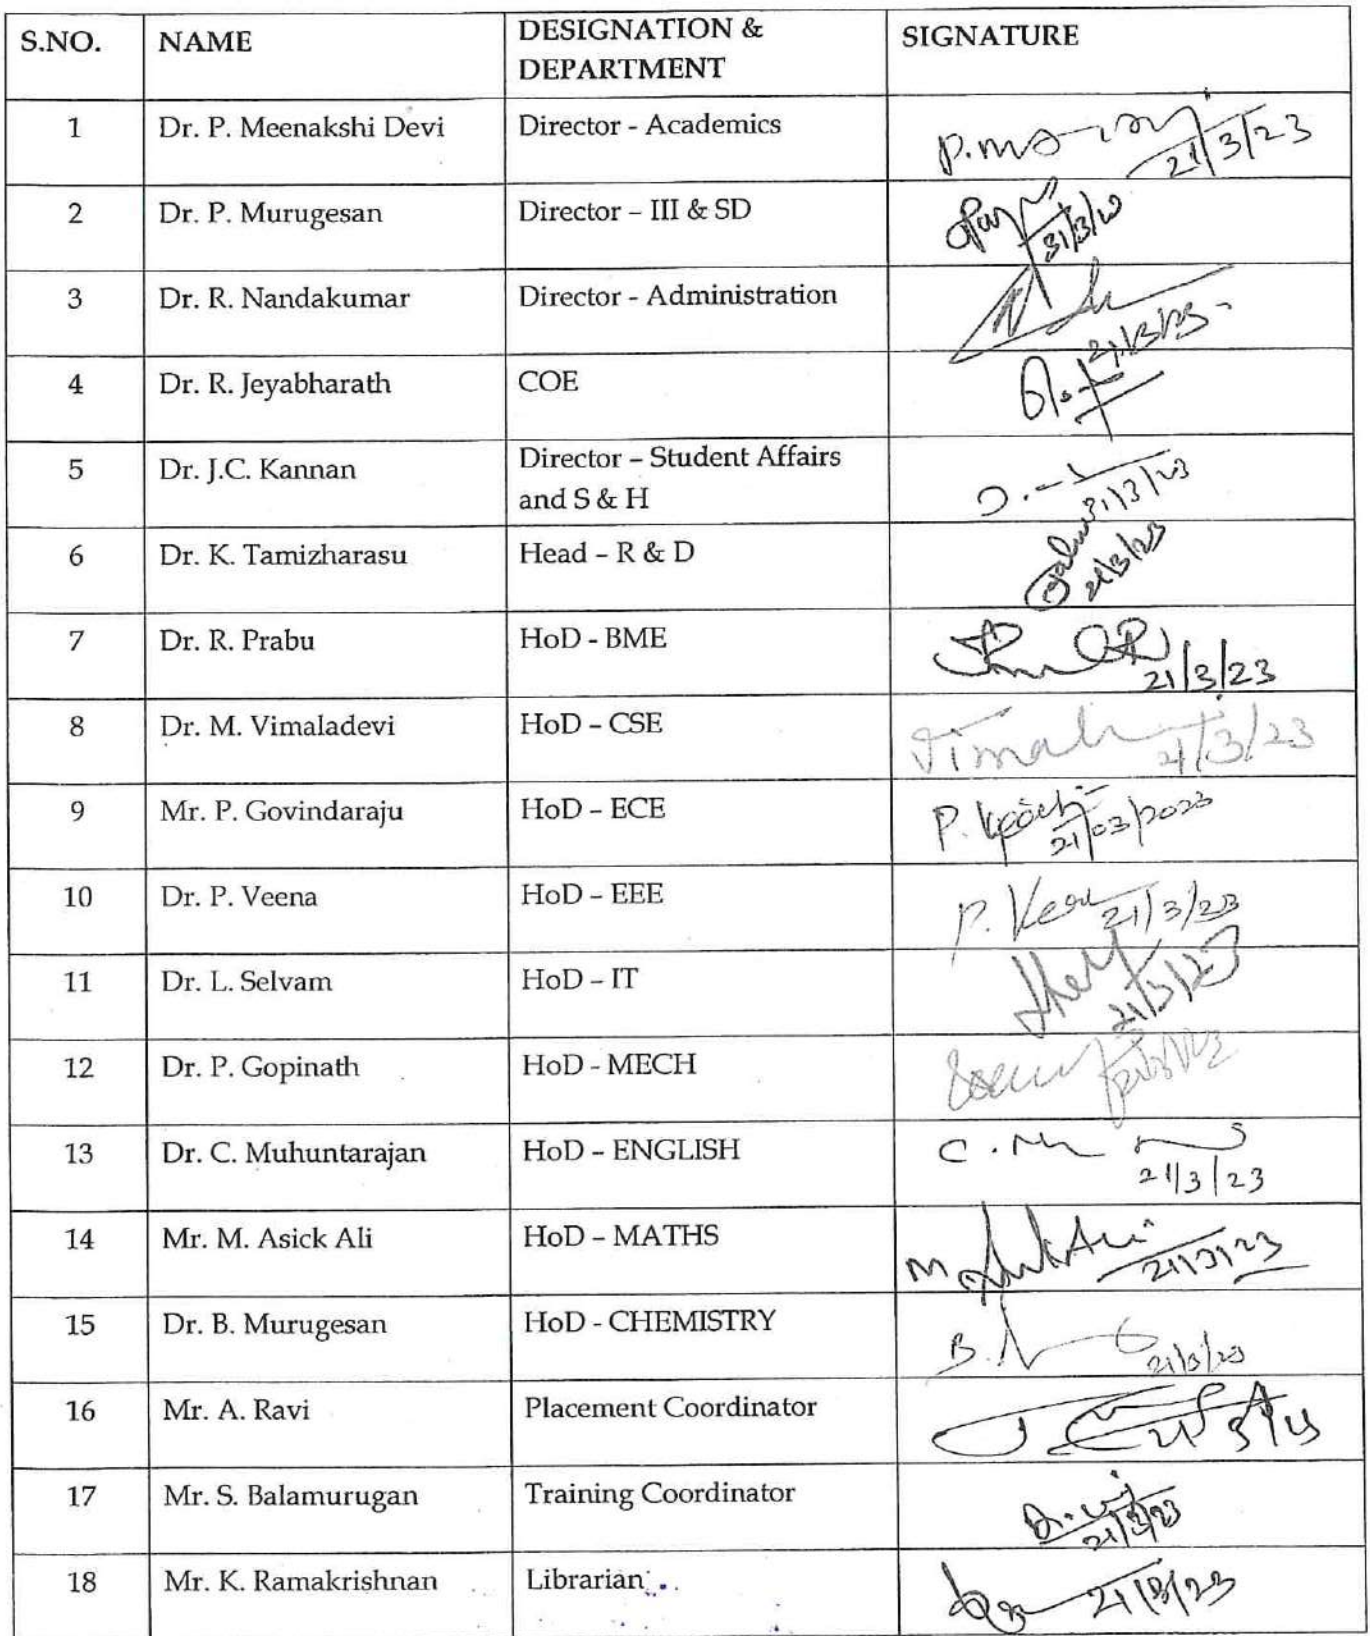 S.NO. NAME DESIGNATION & DEPARTMENT SIGNATURE
1 Dr. P. Meenakshi Devi Director - Academics 21/3/23
2 Dr. P. Murugesan Director – III & SD
3 Dr. R. Nandakumar Director - Administration
4 Dr. R. Jeyabharath COE 21/3/23
5 Dr. J.C. Kannan Director – Student Affairs and S & H
6 Dr. K. Tamizharasu Head – R & D 21/3/23
7 Dr. R. Prabu HoD - BME 21/3/23
8 Dr. M. Vimaladevi HoD – CSE 21/3/23
9 Mr. P. Govindaraju HoD – ECE 21/03/2023
10 Dr. P. Veena HoD – EEE 21/3/23
11 Dr. L. Selvam HoD – IT 21/3/23
12 Dr. P. Gopinath HoD - MECH
13 Dr. C. Muhuntarajan HoD – ENGLISH 21/3/23
14 Mr. M. Asick Ali HoD – MATHS 21/3/23
15 Dr. B. Murugesan HoD - CHEMISTRY 21/3/23
16 Mr. A. Ravi Placement Coordinator 21/3/23
17 Mr. S. Balamurugan Training Coordinator 21/3/23
18 Mr. K. Ramakrishnan Librarian 21/3/23